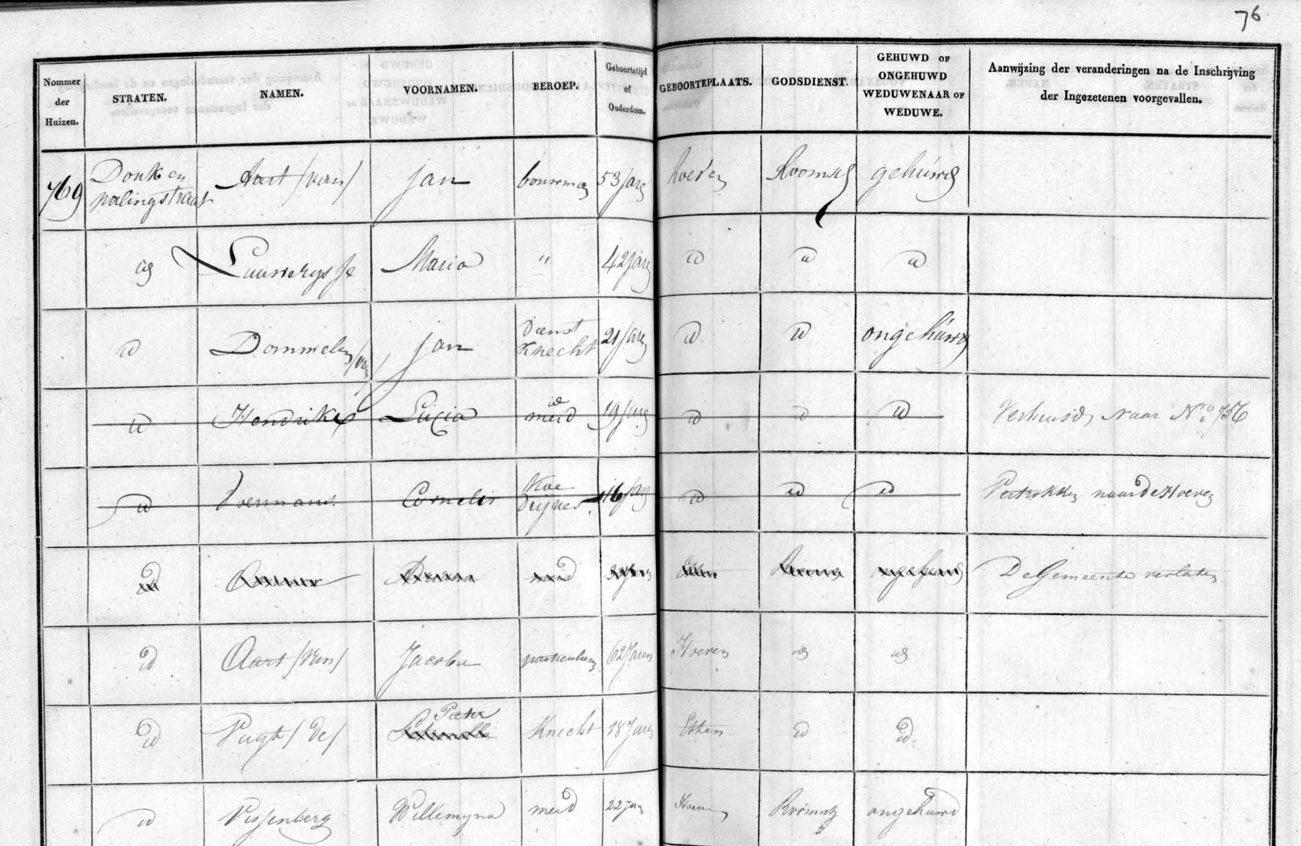 76
Nommer der Huizen. STRATEN. NAMEN. VOORNAMEN. BEROEP. Geboortetijd of Ouderdom. GEBOORTEPLAATS. GODSDIENST. GEHUWD OF ONGEHUWD WEDUWENAAR OF WEDUWE. Aanwijzing der veranderingen na de Inschrijving der Ingezetenen voorgevallen.
769 Donk en palingstraat Aart /van/ Jan bouwman 53 Jaren Hoeven Roomsch gehuwd
id Lauwerysse Maria " 42 Jaren id id id
id Dommelen /van/ Jan Dienst Knecht 21 Jaren id id ongehuwd
id Hendrikx Lucia id meid 19 Jaren id id id Verhuisd naar No 756
id Voermans Cornelis Koe 16 Jaren id id id Vertrokken naar de Hoeven
id meid De Gemeente verlaten
id Aart /van/ Jacoba particuliere 62 Jaren Hoeven id id
id Vugt /de/ Peter Knecht 18 Jaren Etten id id
id Vissenberg Willemyna meid 22 Jaren Hoeven Roomsch ongehuwd